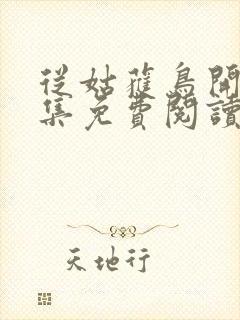 從姑蘇鳥開
集免費閱讀
天地行